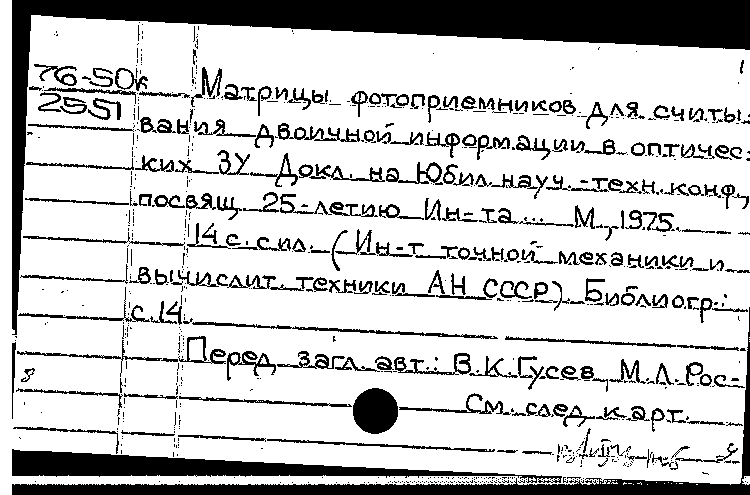 1
76-50к Матрицы фотоприемников для считы-
2551 вания двоичной информации в оптичес-
ких ЗУ Докл. на Юбил. науч.-техн. конф.,
посвящ. 25-летию Ин-та... М., 1975.
14 с. с ил. (Ин-т точной механики и
вычислит. техники АН СССР). Библиогр.:
с. 14.
Перед загл. авт.: В.К. Гусев, М.Л. Рос-
8
См. след. карт.